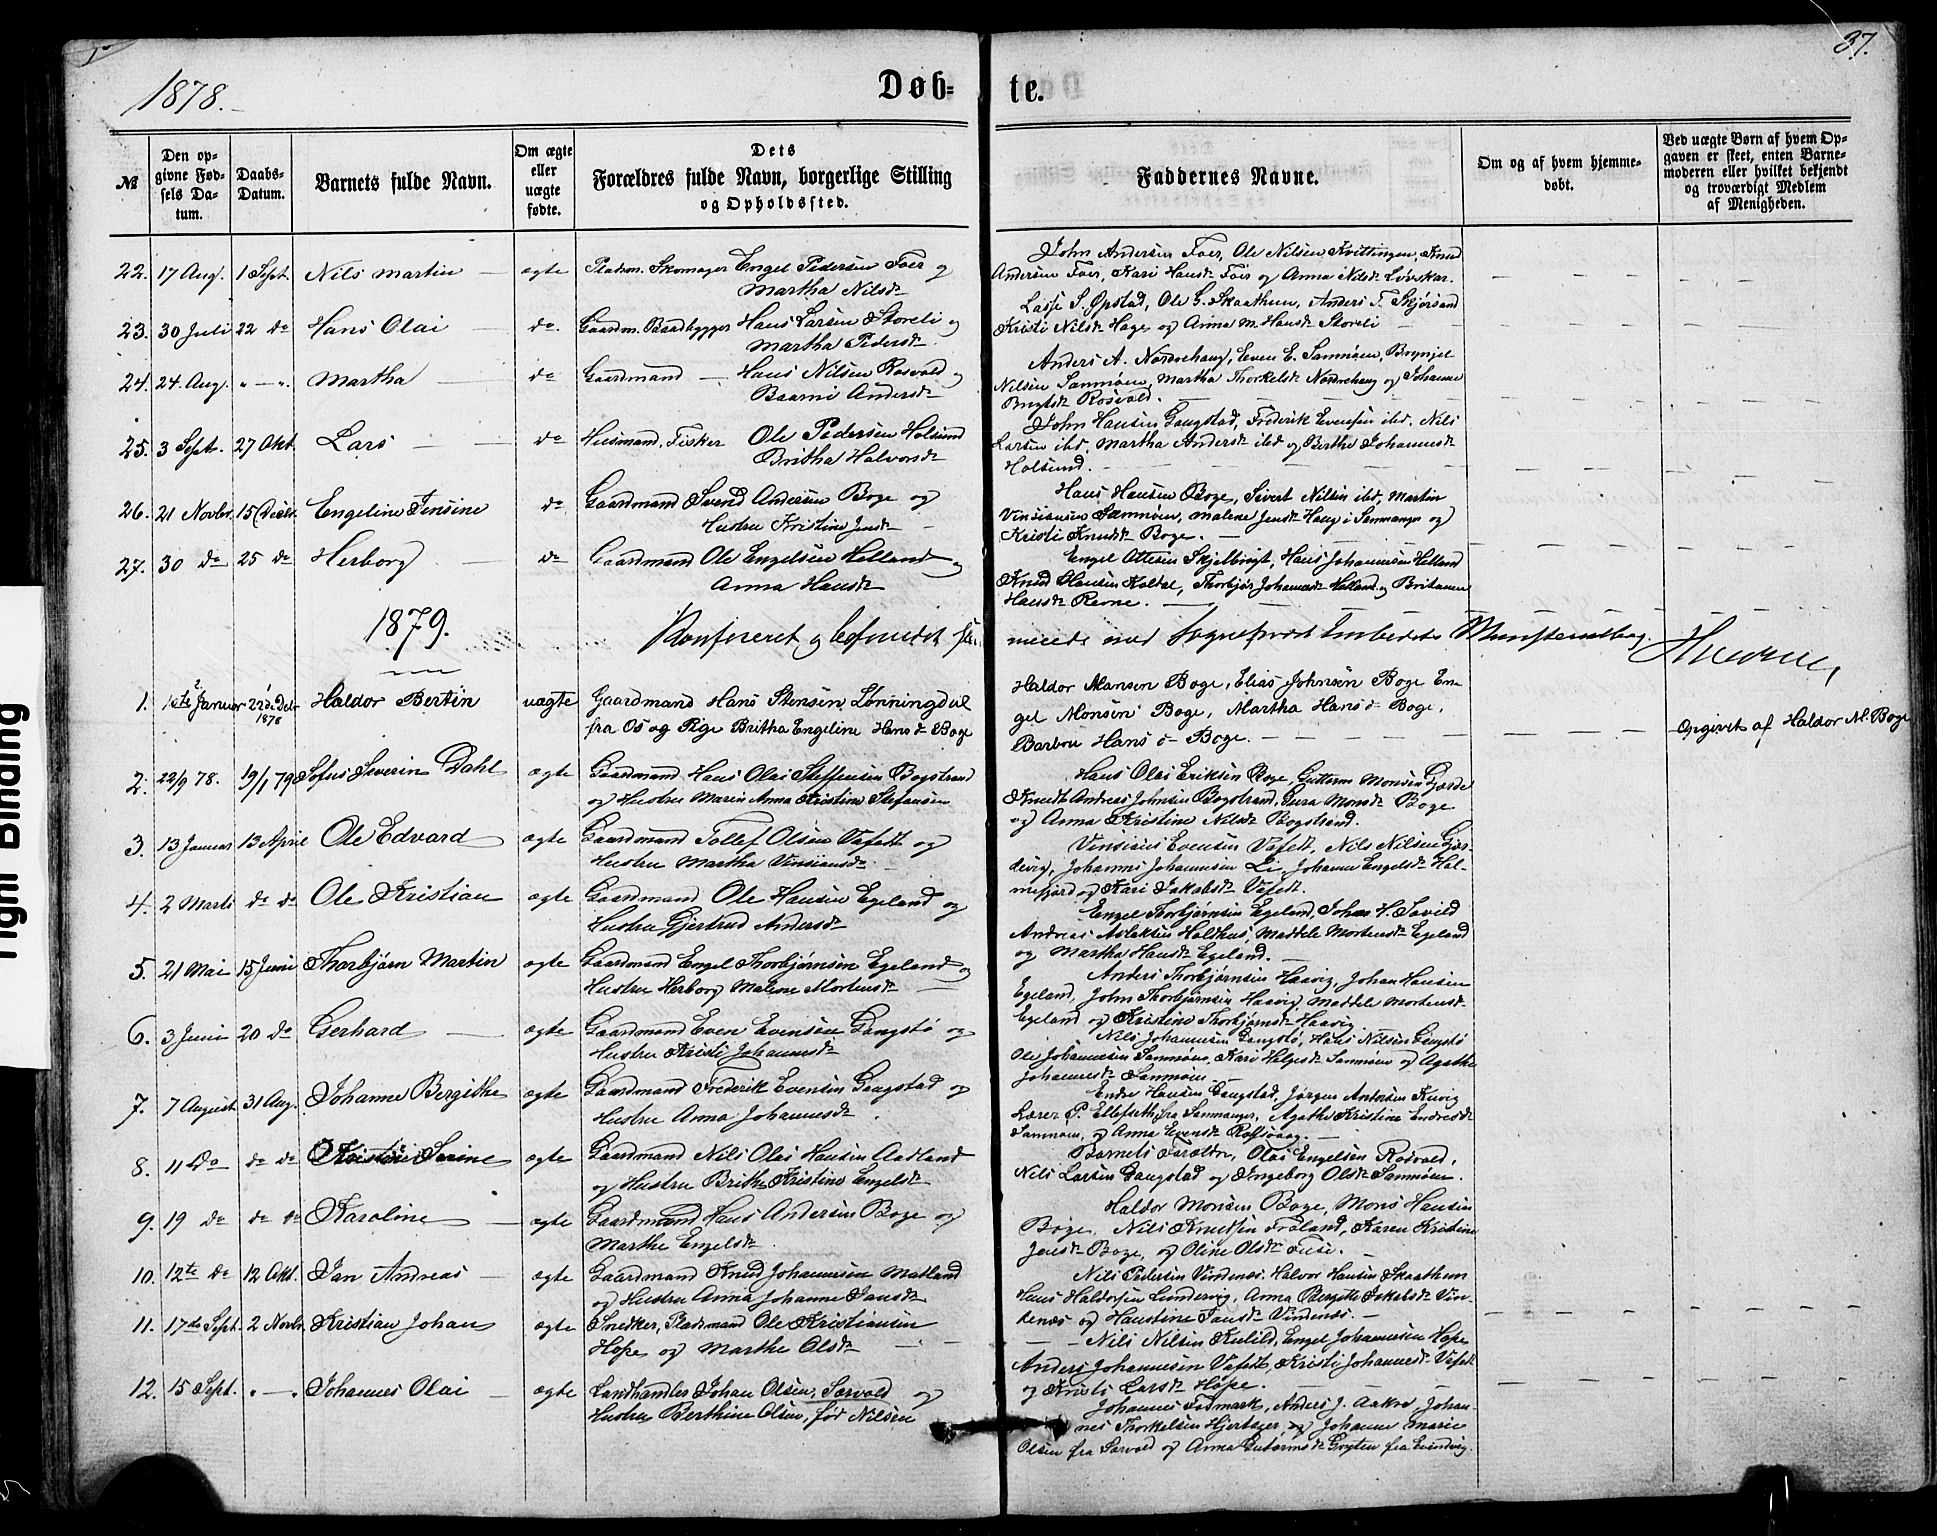 37.
1878.
Døb= te.
№
Den op-
givne Fød-
sels Da-
tum.
Daabs-
Datum.
Barnets fulde Navn.
Om ægte
eller
uægte
fødte.
Dets
Forældres fulde Navn, borgerlige Stilling
og Opholdssted.
Faddernes Navne.
Om og af hvem hjemme-
døbt.
Ved uægte Børn af hvem Op-
gaven er skeet, enten Barne-
moderen eller hvilket bekjendt
og troværdigt Medlem
af Menigheden.
22. 17 Aug. 1 Sept. Nils Martin — ægte Pladsm. Skomager Engel Pedersen Foer og
Martha Nilsdr
John Andersen Foer, Ole Nilsen Kvittingen, Knud
Andersen Foer, Kari Hansdr Foer og Anna Nilsdr Løvskar.
23. 30 Juli 22 do Hans Olai — do. Gaardm. Baadbygger Hans Larsen Storeli og
Martha Pedersdr
Lasse S. Øpstad, Ole G. Skaathun, Anders T. Skjørsand
Kristi Nilsdr Hage og Anna M. Hansdr Storeli —
24. 24. Aug. " — ". Martha — do Gaardmand — Hans Nilsen Rosvold og
Baarni Andersdr
Anders A. Nordrehaug, Even E. Samnøen, Brynjel
Nilsen Samnøen, Martha Thorkelsdr Nordrehaug og Johanne
Rosvold.
25. 3 Sept. 27 Okt. Lars — do Husmand, Fisker Ole Pedersen Holsund
Britha Halvorsdr
John Hansen Gaugstad, Frederik Evensen ibd, Nils
Larsen ibd, Martha Andersdr ibd og Berthe Johannesdr
Holsund.
26. 21 Novbr. 15 Decbr. Engeline Jensine do Gaardmand Svend Andersen Boge og
Hustru Kristine Jensdr —
Hans Hansen Boge, Sivert Nilsen ibd, Martin
Vinsiansen Samnøen, Malene Jensdr Haug i Samnanger og
Kristi Knudsdr Boge. —
27. 30 do 25 do Herborg — do Gaardmand Ole Engelsen Helland og
Anna Hansdr
Engel Ottesen Skjelbreyt, Hans Johannesen Helland
Knud Hansen Koldal, Thorbjør Johannesdr Helland og Britanna
Hansdr
1879.
Konfereret og befundet
med Sognepræst Embedets Ministerialbog.
1. 1ste Januar 22de Debr
1878 Haldor Bertin uægte Gaardmand Hans Stensen Lønningdal
fra Os og Pige Britha Engeline Hansdr Boge
Haldor Monsen Boge, Elias Johnsen Boge En-
gel Monsen Boge, Martha Hansdr Boge,
Barbru Hansdr Boge. —
Opgivet af Haldor M. Boge
2. 22/9 78. 19/1 79 Sofus Severin Dahl ægte Gaardmand Hans Olai Steffensen Bogstrand
og Hustru Maren Anna Kristine Stefansen
Hans Olai Eriksen Boge, Guttorm Monsen Gjerde
Knudt Andreas Johnsen Bogstrand, Gura Monsdr Boge
og Anna Kristine Nilsdr Bogstrand.
3. 13 Januar 13 April Ole Edvard ægte Gaardmand Tollef Olsen Vefedt og
Hustru Martha Vinsiansdr
Vinsians Evensen Vefedt, Nils Nilsen Gjer-
devig, Johannes Johannesen Li, Johanne Engelsdr Hol-
mefjord og Kari Jakobsdr Vefedt.
4. 2 Marts do do Ole Kristian ægte Gaardmand Ole Hansen Egeland og
Hustru Gjertrud Andersdr
Engel Thorbjørnsen Egeland, Johan H.
Andreas Aslaksen Holdhus, Maddele Mortensdr Egeland
og Martha Hansdr Egeland. —
5. 21 Mai 15 Juni Thorbjørn Martin ægte Gaardmand Engel Thorbjørnsen Egeland og
Hustru Herborg Malene Mortensdr —
Anders Thorbjørnsen Haavig, Johan Hansen
Egeland, John Thorbjørnsen Haavig, Maddele Mortensdr
Egeland og Kristine Thorbjørnsdr Haavig
6. 3 Juni 20 do Gerhard — ægte Gaardmand Even Evensen Gangstø og
Hustru Kristi Johannesdr
Nils Johannesen Gangstø, Hans Nilsen Gangstø
Ole Johannesen Samnøen, Kari Helgesdr Samnøen og Agathe
Johannesdr Samnøen —
7. 7 August 31 Aug. Johanne Bergithe ægte Gaardmand Frederik Evensen Gaugstad og
Hustru Anna Johannesdr
Endre Hansen Gaugstad, Jørgen Andersen
Lærer P. Ellefseth fra Samnanger, Agathe Kristine Endresdr
Samnøen, og Anna Evensdr —
8. 11 do do do Kristine Serine ægte Gaardmand Nils Olai Hansen Aadland
og Hustru Brithe Kristine Engelsdr
Barnets Forældre, Olai Engelsen Rosvold,
Nils Larsen Gaugstad og Ingeborg Olsdr Samnøen.
9. 19 do do do Karoline — ægte Gaardmand Hans Andersen Boge og
Marthe Engelsdr
Haldor Monsen Boge, Mons Hansen
Boge, Nils Knudsen Frøland, Karen Kristine
Jensdr Boge, og Oline Olsdr Fuse. —
10. 12te do 12 Okt. Jan Andreas — ægte Gaardmand Knud Johannesen Matland
og Hustru Anna Johanne Jansdr
Nils Pedersen Vindenæs, Halvor Hansen Skaathun
Hans Haldorsen Lundervig, Anna Bergitte Jakobsdr Vin-
denæs og Haustine Jansdr Vindenæs. —
11. 17de Sept. 2 Novbr. Kristian Johan ægte Snedker, Pladsmand Ole Kristiansen
Hope og Marthe Olsdr —
Nils Nilsen Kulild, Engel Johannesen Hope
Anders Johannesen Vefedt, Kristi Johannesdr Vefedt
og Kristi Larsdr Hope.
12. 15 Sept. " — ". Johannes Olai — ægte Landhandler Johan Olsen, Sævold og
Hustru Berthine Olsen, fød Nilsen
Johannes Fadmark, Anders J. Aakre, Johan-
nes Thorkelsen Hjertager, og Johanne Marie
Olsen fra Sævold og Anna Gutormsdr fra
Tight Binding